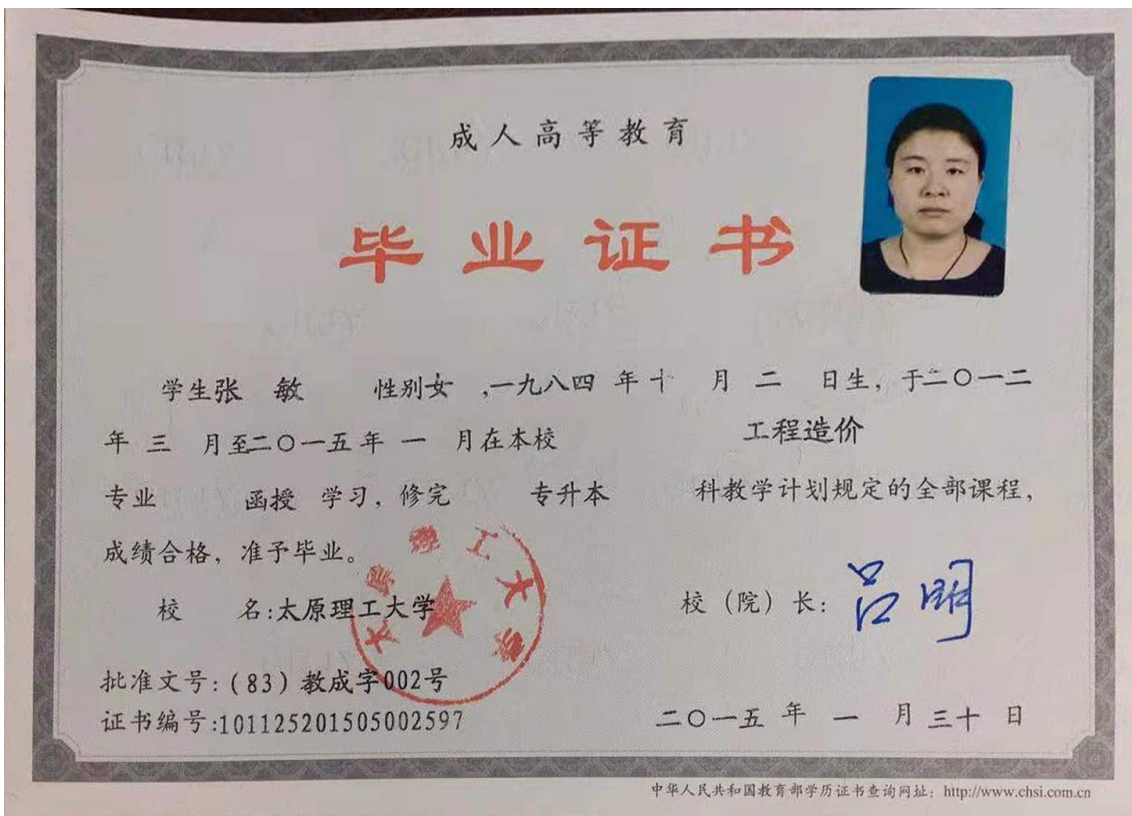 成人高等教育
毕业证书
学生张 敏 性别女 ,一九八四 年 十 月 二 日生，于二〇一二
年 三 月至二〇一五年 一 月在本校 工程造价
专业 函授 学习，修完 专升本 科教学计划规定的全部课程，
成绩合格，准予毕业。
太原理工大学
校 名:太原理工大学 校（院）长: 吕明
批准文号:(83)教成字002号
证书编号:101125201505002597 二〇一五 年 一 月 三十 日
中华人民共和国教育部学历证书查询网址：http://www.chsi.com.cn